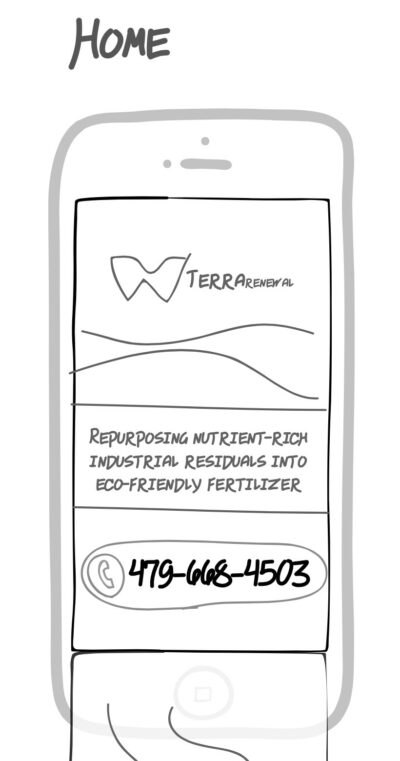 HOME
TERRARENEWAL
REPURPOSING NUTRIENT-RICH
INDUSTRIAL RESIDUALS INTO
ECO-FRIENDLY FERTILIZER
479-668-4503